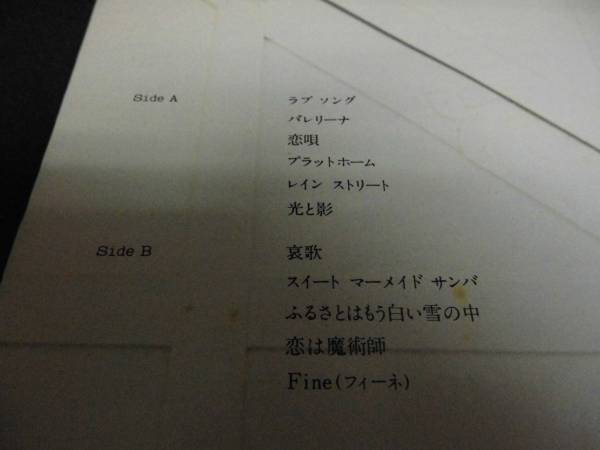 Side A
ラブ ソング
バレリーナ
恋唄
プラットホーム
レイン ストリート
光と影
Side B
哀歌
スイート マーメイド サンバ
ふるさとはもう白い雪の中
恋は魔術師
Fine(フィーネ)